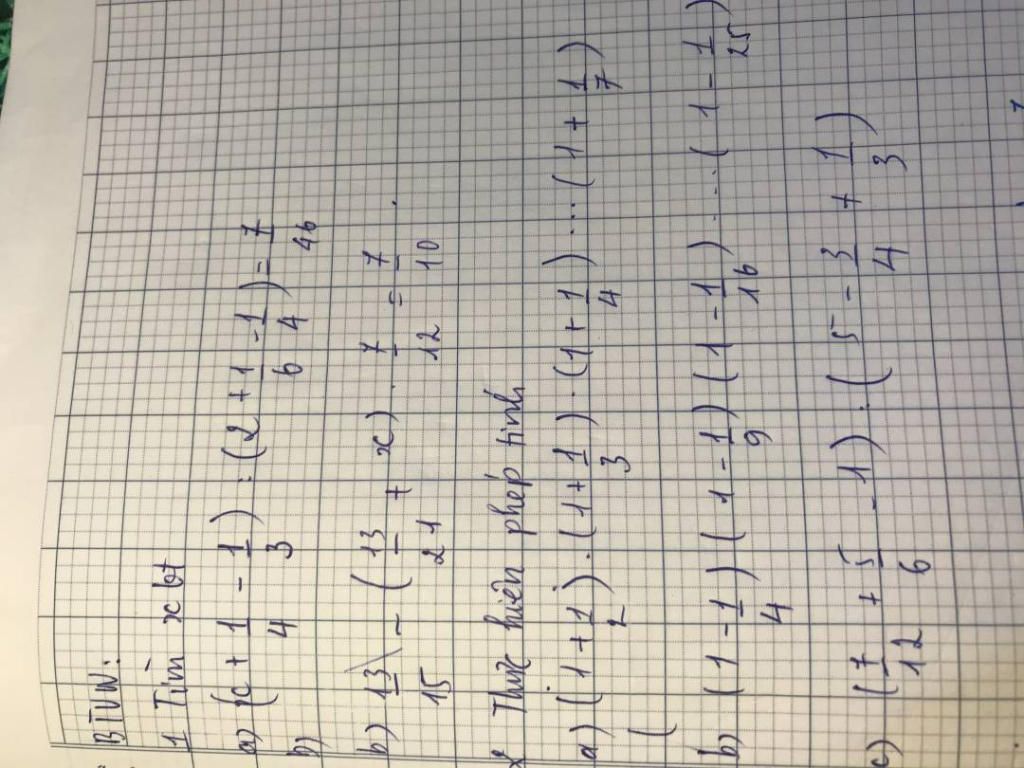 BTVN:
1 Tìm x bt
a) (x + 1/4 - 1/3) : (2 + 1/6 - 1/4) = 7/46
b)
b) 13/15 - (13/21 + x) . 7/12 = 7/10 .
2 Thực hiện phép tính
a) (1 + 1/2) . (1 + 1/3) . (1 + 1/4) ... (1 + 1/7)
(
b) (1 - 1/4) (1 - 1/9) (1 - 1/16) ... (1 - 1/25)
c) (7/12 + 5/6 - 1) : (5 - 3/4 + 1/3)